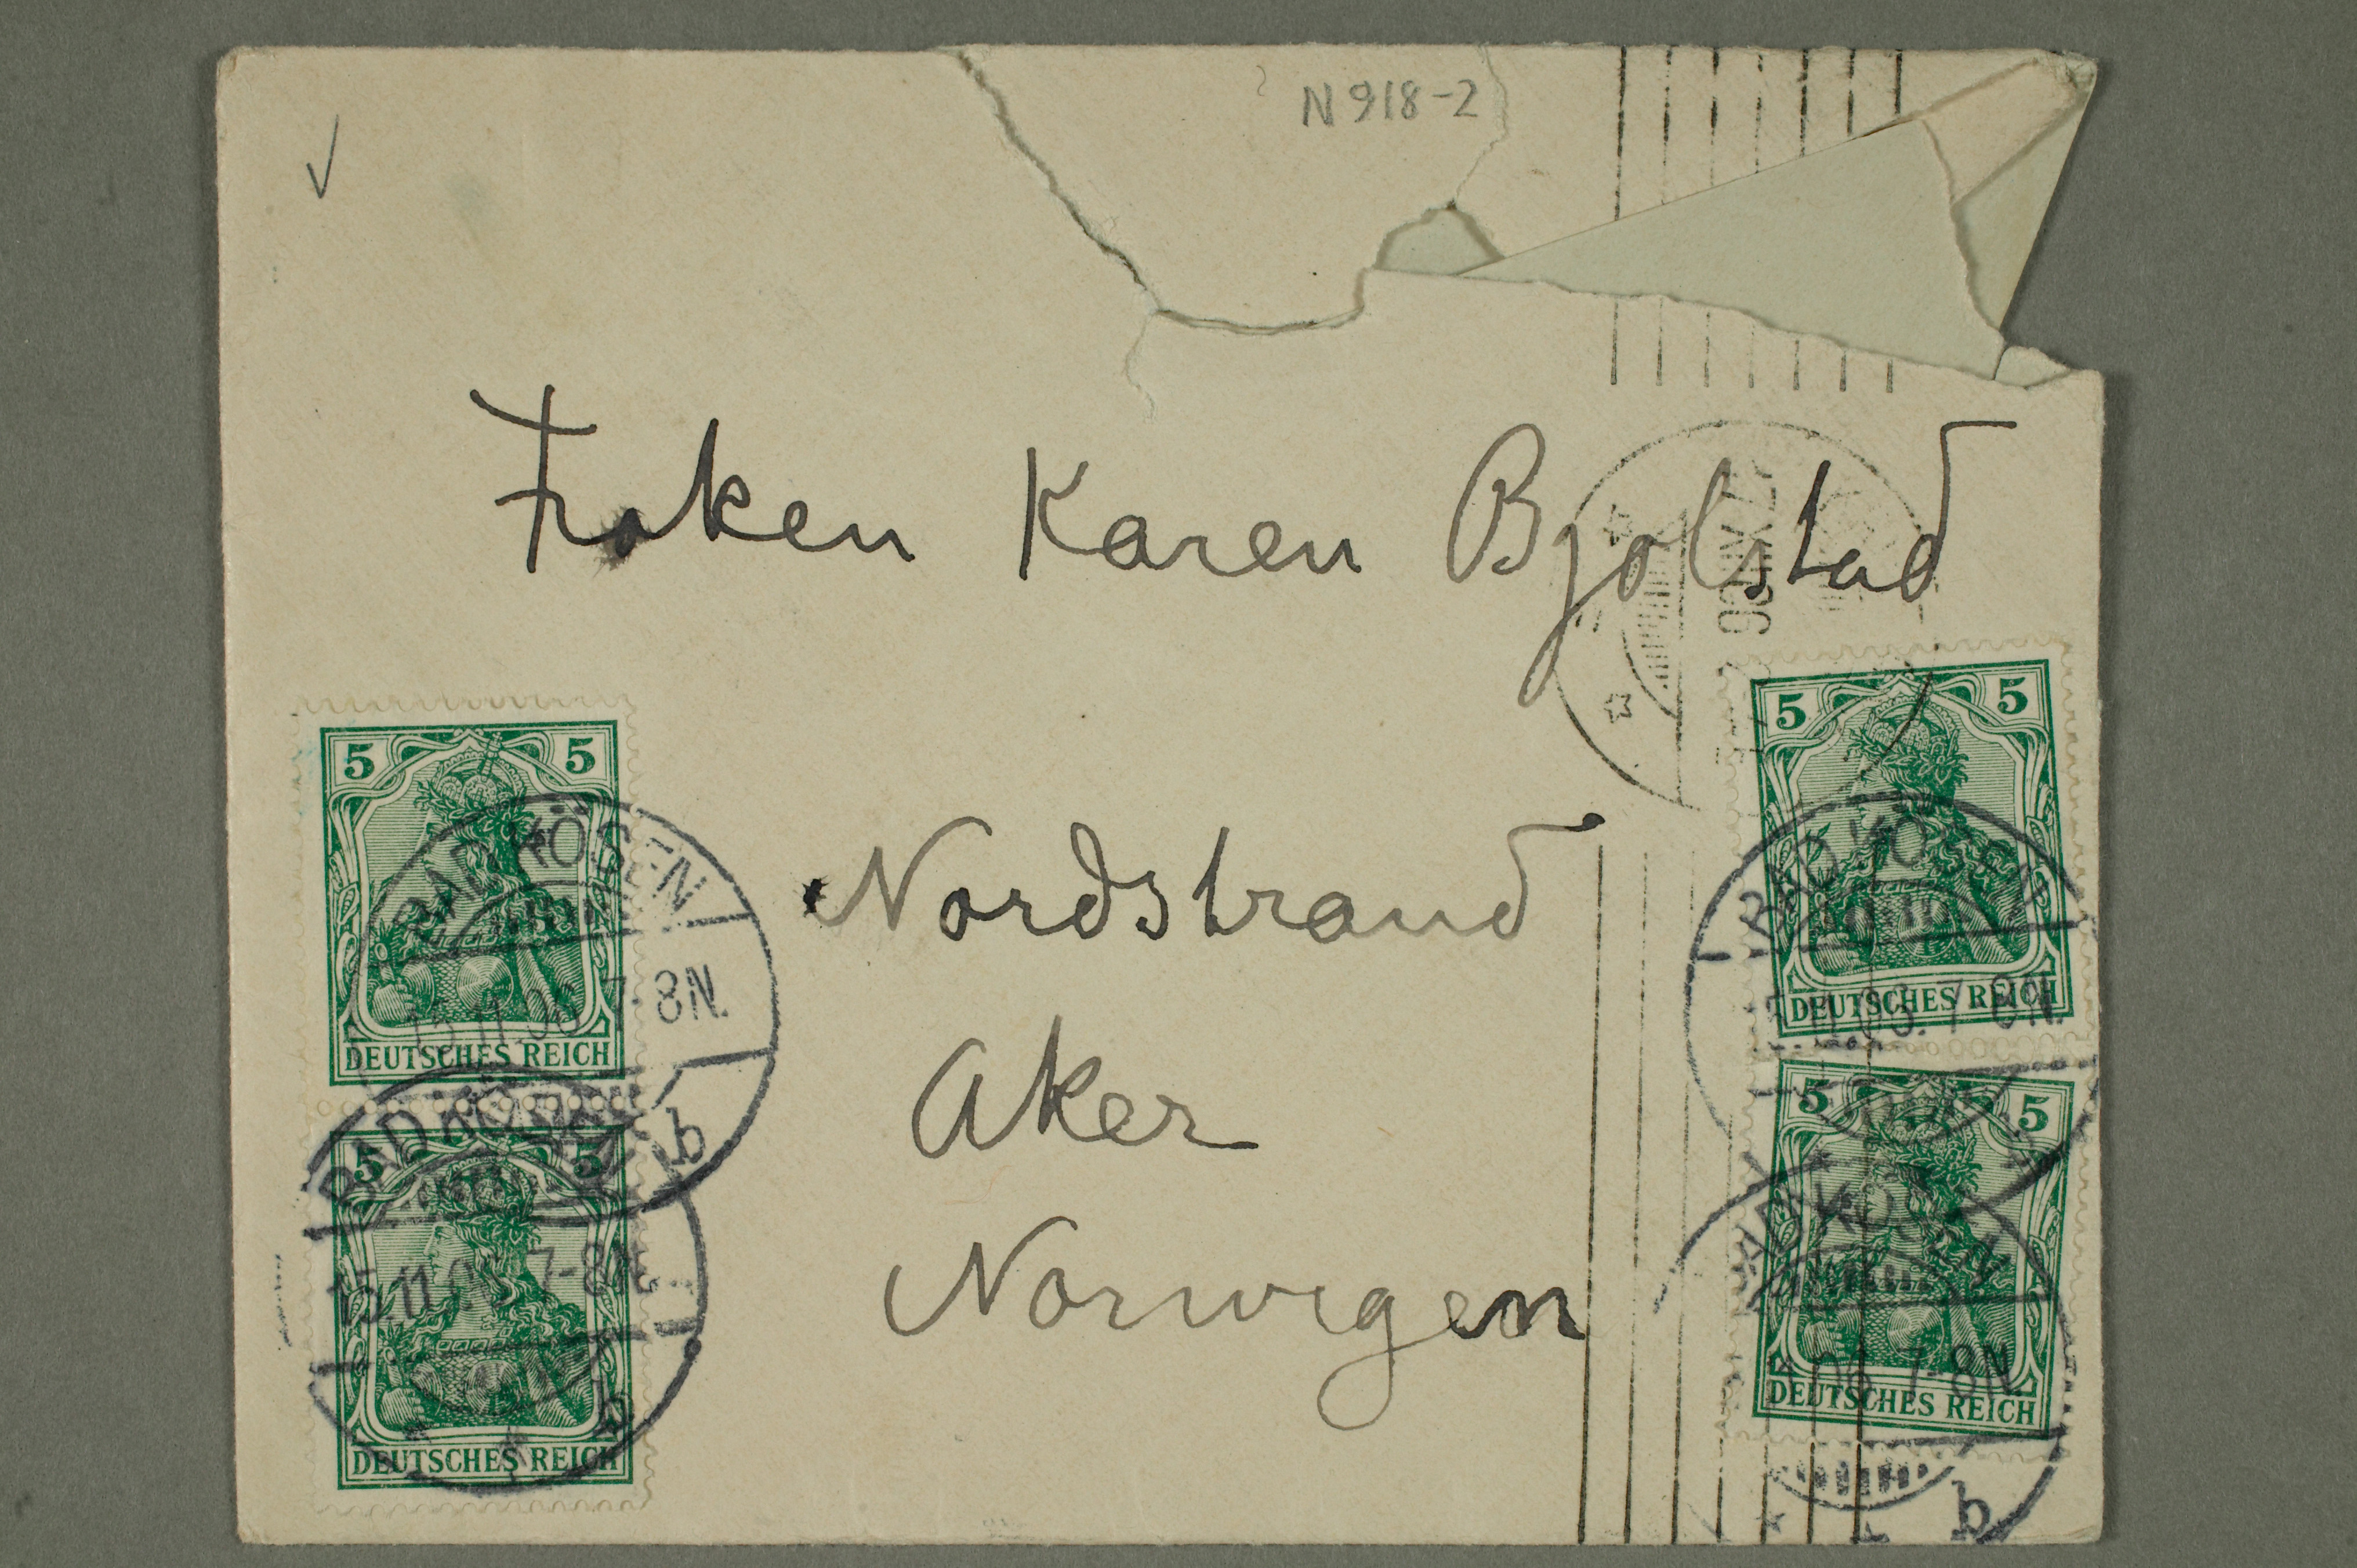 N 918-2
Frøken Karen Bjølstad
Nordstrand
Aker
Norwegen
5 5
DEUTSCHES REICH
5 5
DEUTSCHES REICH
5 5
DEUTSCHES REICH
5 5
DEUTSCHES REICH
BAD KÖSEN
15.11.06. 7-8N.
b
BAD KÖSEN
15.11.06. 7-8N.
b
BAD KÖSEN
7-8N.
BAD KÖSEN
7-8N.
b